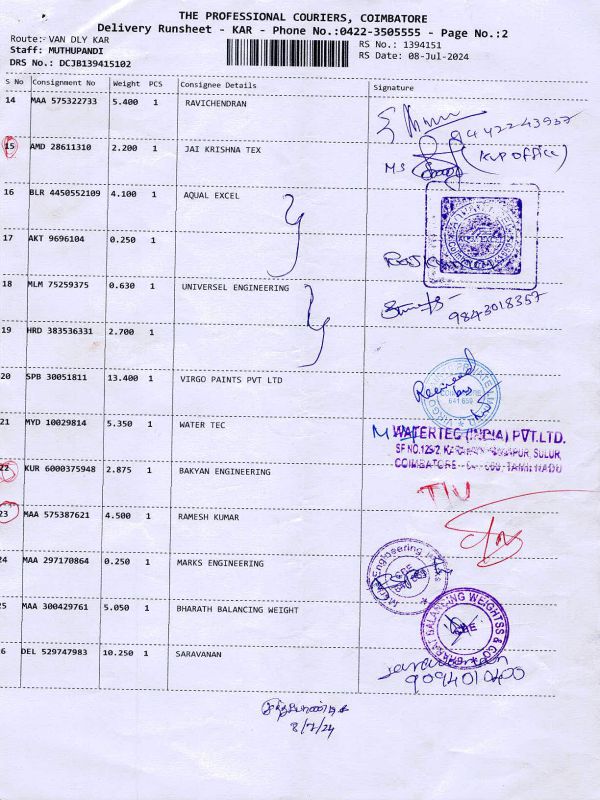 THE PROFESSIONAL COURIERS, COIMBATORE
Delivery Runsheet - KAR - Phone No.:0422-3505555 - Page No.:2
Route: VAN DLY KAR
Staff: MUTHUPANDI
DRS No.: DCJB139415102
RS No.: 1394151
RS Date: 08-Jul-2024
S No Consignment No Weight PCS Consignee Details Signature
14 MAA 575322733 5.400 1 RAVICHENDRAN
9442243937
15 AMD 28611310 2.200 1 JAI KRISHNA TEX
MS (KVP OFFICE)
16 BLR 4450552109 4.100 1 AQUAL EXCEL
17 AKT 9696104 0.250 1
18 MLM 75259375 0.630 1 UNIVERSEL ENGINEERING
9843018357
19 HRD 383536331 2.700 1
20 SPB 30051811 13.400 1 VIRGO PAINTS PVT LTD
Received
by
21 MYD 10029814 5.350 1 WATER TEC
WATERTEC (INDIA) PVT.LTD.
SULUR,
COIMBATORE TAMIL NADU
22 KUR 6000375948 2.875 1 BAKYAN ENGINEERING
23 MAA 575387621 4.500 1 RAMESH KUMAR
24 MAA 297170864 0.250 1 MARKS ENGINEERING
25 MAA 300429761 5.050 1 BHARATH BALANCING WEIGHT
BHARAT BALANCING WEIGHTSS & CO
6 DEL 529747983 10.250 1 SARAVANAN
9094010400
8/7/24